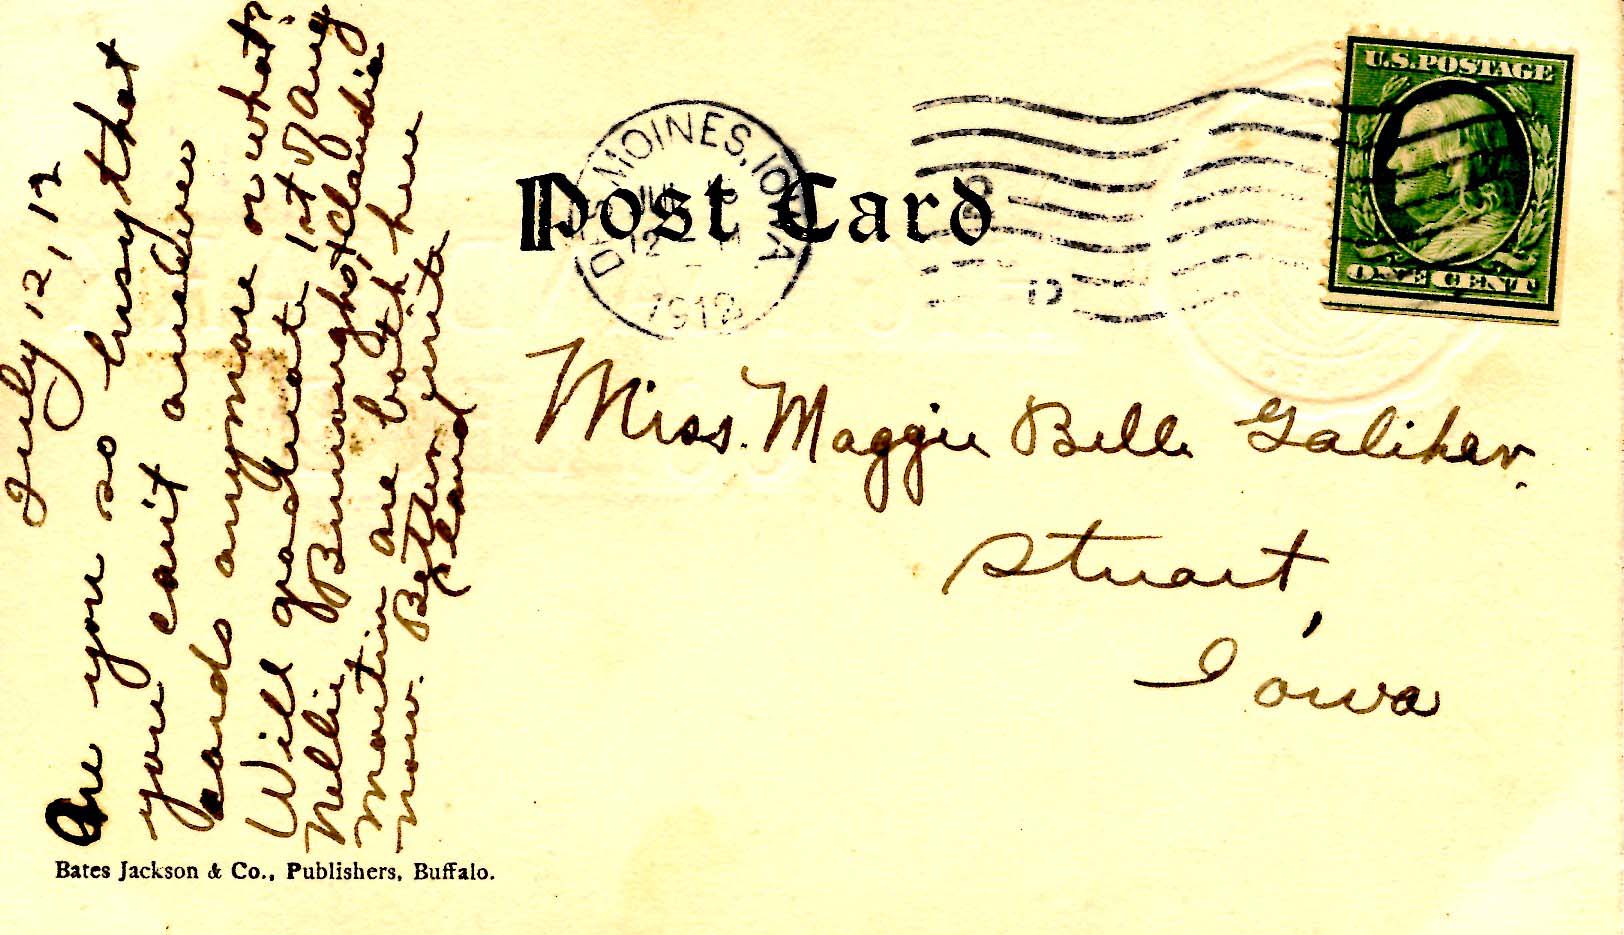 July 12, 12
Are you so busy that
you can't answer
cards anymore or what?
Will graduate 1st of Aug
Nellie Burroughs, Claudia
Martin are both here
now. Better write
Claud
Post Card
DES MOINES, IOWA
JUL
12
1912
D
U.S. POSTAGE
ONE CENT
Miss. Maggie Belle Galiher.
Stuart,
Iowa
Bates Jackson & Co., Publishers, Buffalo.